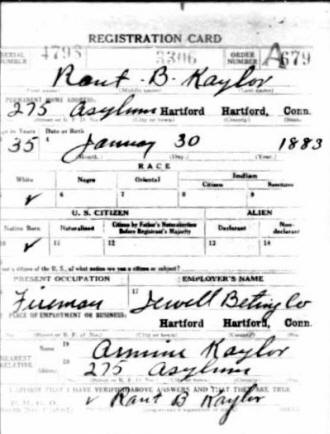 REGISTRATION CARD
SERIAL NUMBER 4798 3306 ORDER NUMBER A679
Rant B. Kaylor
PERMANENT HOME ADDRESS:
275 Asylum Hartford Hartford, Conn.
Age in Years Date of Birth
35 January 30 1883
(Month.) (Day.) (Year.)
RACE
White Negro Oriental Indian
Citizen Noncitizen
✓ 6 7 8 9
U. S. CITIZEN ALIEN
Native Born Naturalized Citizen by Father's Naturalization Before Registrant's Majority Declarant Non-declarant
10 ✓ 11 12 13 14
If not a citizen of the U. S., of what nation are you a citizen or subject?
PRESENT OCCUPATION EMPLOYER'S NAME
Fireman 17 Jewell Belting Co
PLACE OF EMPLOYMENT OR BUSINESS:
Hartford Hartford, Conn.
NEAREST RELATIVE Name 19 Kaylor
Address 20 275 Asylum
I AFFIRM THAT I HAVE VERIFIED ABOVE ANSWERS AND THAT THEY ARE TRUE
Rant B Kaylor